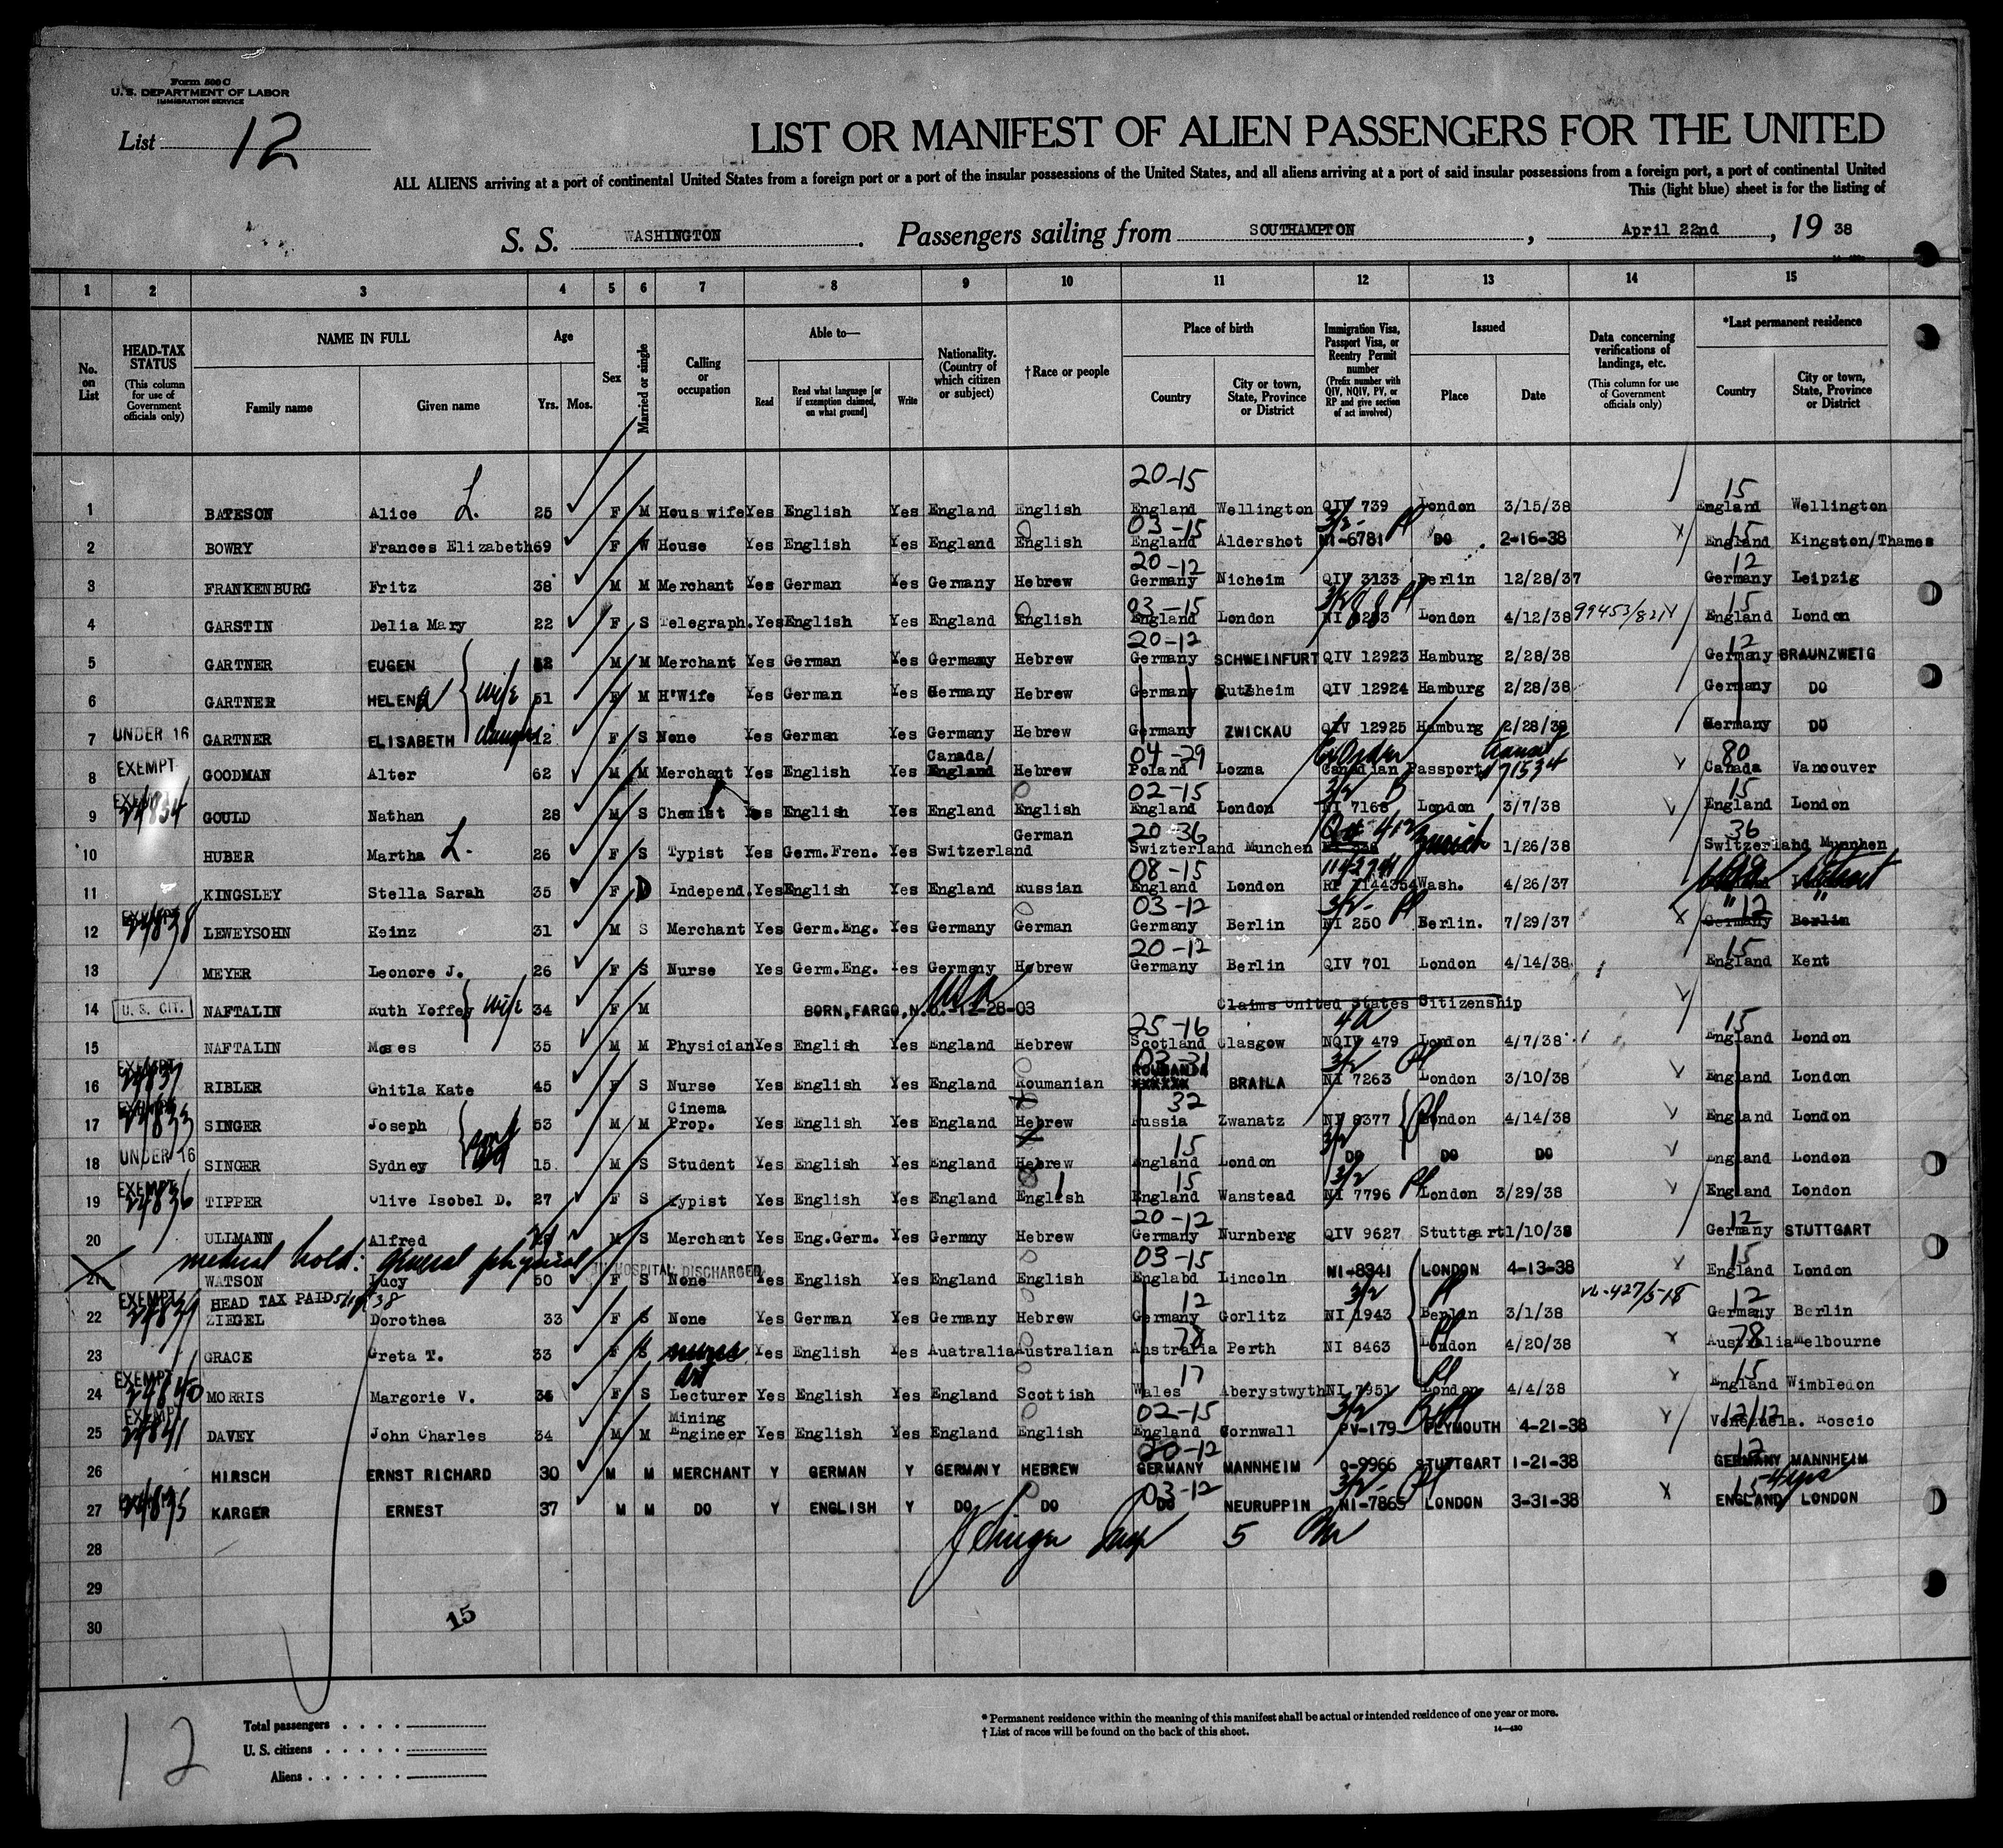 Form 500 C
U. S. DEPARTMENT OF LABOR
IMMIGRATION SERVICE
List 12
LIST OR MANIFEST OF ALIEN PASSENGERS FOR THE UNITED
ALL ALIENS arriving at a port of continental United States from a foreign port or a port of the insular possessions of the United States, and all aliens arriving at a port of said insular possessions from a foreign port, a port of continental United
This (light blue) sheet is for the listing of
S. S. WASHINGTON . Passengers sailing from SOUTHAMPTON , April 22nd , 19 38
1 2 3 4 5 6 7 8 9 10 11 12 13 14 15
No. on List
HEAD-TAX STATUS (This column for use of Government officials only)
NAME IN FULL
Family name Given name
Age Yrs. Mos.
Sex
Married or single
Calling or occupation
Able to—
Read Read what language [or if exemption claimed, on what ground] Write
Nationality. (Country of which citizen or subject)
†Race or people
Place of birth
Country City or town, State, Province or District
Immigration Visa, Passport Visa, or Reentry Permit number (Prefix number with QIV, NQIV, PV, or RP and give section of act involved)
Issued
Place Date
Data concerning verifications of landings, etc. (This column for use of Government officials only)
*Last permanent residence
Country City or town, State, Province or District
20-15 15
1 BATESON Alice L. 25 F M Houswife Yes English Yes England English England Wellington QIV 739 London 3/15/38 England Wellington
03-15 3/2- 15
2 BOWRY Frances Elizabeth 69 F W House Yes English Yes England English England Aldershot NI-6781 DO . 2-16-38 England Kingston/Thames
20-12 12
3 FRANKENBURG Fritz 38 M M Merchant Yes German Yes Germany Hebrew Germany Nicheim QIV 3133 Berlin 12/28/37 Germany Leipzig
03-15 3/2 15
4 GARSTIN Delia Mary 22 F S Telegraph. Yes English Yes England English England London NI 8283 London 4/12/38 99453/821 England London
20-12 12
5 GARTNER EUGEN 52 M M Merchant Yes German Yes Germany Hebrew Germany SCHWEINFURT QIV 12923 Hamburg 2/28/38 Germany BRAUNZWEIG
6 GARTNER HELENA wife 51 F M H'Wife Yes German Yes Germany Hebrew Germany QIV 12924 Hamburg 2/28/38 Germany DO
7 UNDER 16 GARTNER ELISABETH 12 F S None Yes German Yes Germany Hebrew Germany ZWICKAU QIV 12925 Hamburg 2/28/38 Germany DO
Canada/ 04-29 80
8 EXEMPT GOODMAN Alter 62 M M Merchant Yes English Yes England Hebrew Poland Lozma Canadian Passport 71534 Canada Vancouver
02-15 3/2 15
9 24834 GOULD Nathan 28 M S Chemist Yes English Yes England English England London NI 7168 London 3/7/38 England London
German 20-36 412 36
10 HUBER Martha L. 26 F S Typist Yes Germ.Fren. Yes Switzerland Swizterland Munchen Zurich 1/26/38 Switzerland Munchen
08-15
11 KINGSLEY Stella Sarah 35 F D Independ. Yes English Yes England Russian England London RP Wash. 4/26/37 Detroit
03-12 3/2- " 12 "
12 24838 LEWEYSOHN Heinz 31 M S Merchant Yes Germ.Eng. Yes Germany German Germany Berlin NI 250 Berlin. 7/29/37 Germany Berlin
20-12 15
13 MEYER Leonore J. 26 F S Nurse Yes Germ.Eng. Yes Germany Hebrew Germany Berlin QIV 701 London 4/14/38 England Kent
14 U. S. CIT. NAFTALIN Ruth Yoffey wife 34 F M BORN, FARGO, N.D.-12-28-03 USA Claims United States Citizenship
25-16 4A 15
15 NAFTALIN Moses 35 M M Physician Yes English Yes England Hebrew Scotland Glasgow NQIV 479 London 4/7/38 England London
03-31 3/2
16 EXEMPT 24837 RIBLER Ghitla Kate 45 F S Nurse Yes English Yes England Roumanian ROUMANIA XXXXXX BRAILA NI 7263 London 3/10/38 England London
Cinema 32
17 EXEMPT 24833 SINGER Joseph 53 M M Prop. Yes English Yes England Hebrew Russia Zwanatz NI 8377 London 4/14/38 England London
15 3/2
18 UNDER 16 SINGER Sydney son 15 M S Student Yes English Yes England Hebrew England London DO DO DO England London
15 3/2
19 EXEMPT 24836 TIPPER Olive Isobel D. 27 F S Typist Yes English Yes England English England Wanstead NI 7796 London 3/29/38 England London
20-12 12
20 ULLMANN Alfred M S Merchant Yes Eng.Germ. Yes Germny Hebrew Germany Nurnberg QIV 9627 Stuttgart 1/10/38 Germany STUTTGART
medical hold: general physical HOSPITAL DISCHARGED 03-15 15
21 WATSON Lucy 50 F S None Yes English Yes England English Englabd Lincoln NI-8341 LONDON 4-13-38 England London
EXEMPT HEAD TAX PAID 12 3/2 12
22 24839 ZIEGEL Dorothea 33 F S None Yes German Yes Germany Hebrew Germany Gorlitz NI 1943 Berlin 3/1/38 Germany Berlin
78 78
23 GRACE Greta T. 33 F S nurse Yes English Yes Auatralia Australian Australia Perth NI 8463 London 4/20/38 Australia Melbourne
Art 17 15
24 EXEMPT 24840 MORRIS Margorie V. 36 F S Lecturer Yes English Yes England Scottish Wales Aberystwyth NI 7951 London 4/4/38 England Wimbledon
Mining 02-15 3/2
25 EXEMPT 24841 DAVEY John Charles 34 M M Engineer Yes English Yes England English England Cornwall PV-179 PLYMOUTH 4-21-38 Venezuela. Roscio
20-12 12
26 HIRSCH ERNST RICHARD 30 M M MERCHANT Y GERMAN Y GERMANY HEBREW GERMANY MANNHEIM Q-9966 STUTTGART 1-21-38 GERMANY MANNHEIM
03-12 3/2- 15-4yrs
27 24835 KARGER ERNEST 37 M M DO Y ENGLISH Y DO DO DO NEURUPPIN NI-7865 LONDON 3-31-38 ENGLAND LONDON
28
29
30
15
12
Total passengers
U. S. citizens
Aliens
* Permanent residence within the meaning of this manifest shall be actual or intended residence of one year or more.
† List of races will be found on the back of this sheet. 14—430